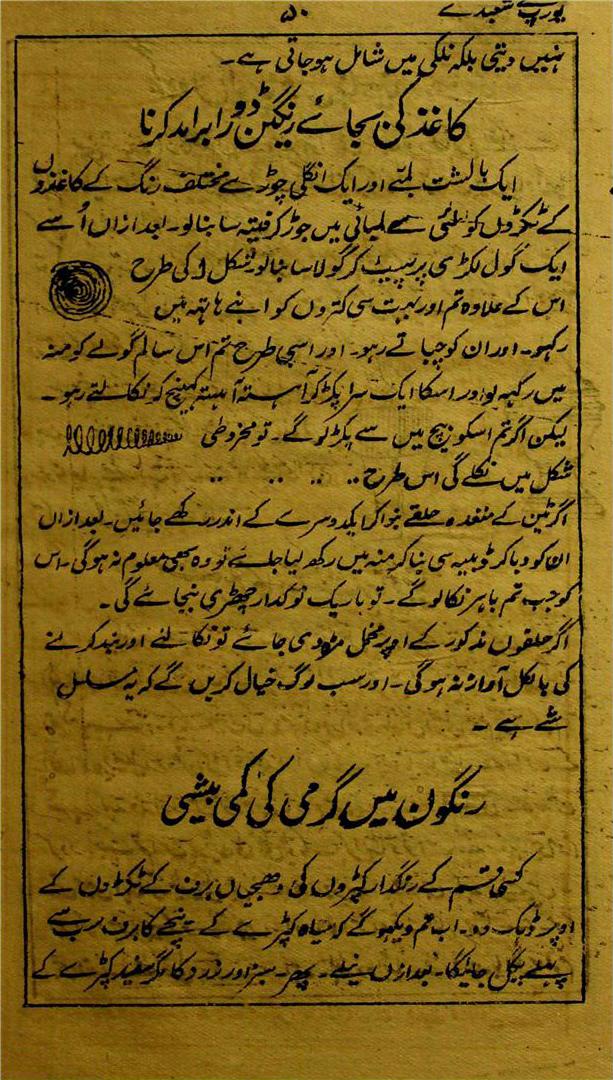 یورپ کے شعبدے ۵۰
نہیں دیتی بلکہ نلکی میں شامل ہوجاتی ہے۔
کاغذ کی بجائے رنگین ڈورا برامد کرنا
ایک بالشت لمبے اور ایک انگلی چوڑے مختلف رنگ کے کاغذوں
کے ٹکڑوں کو لئی سے لمبائی میں جوڑ کر فیتہ سا بنا لو۔ بعد ازاں اُسے
ایک گول لکڑی پر لپیٹ کر گولا سا بنا لو شکل 1 کی طرح
اس کے علاوہ تم اور بہت سی کترون کو اپنے ہاتھ میں
رکہو۔ اور ان کو چباتے رہو۔ اور اسی طرح تم اس سالم گولے کو منہ
میں رکہہ لو اور اسکا ایک سرا پکڑ کر آہستہ آہستہ کھینچ کر نکالتے رہو۔
لیکن اگر تم اسکو بیچ میں سے پکڑو گے۔ تو مخروطی
شکل میں نکلے گی اس طرح
اگر ٹین کے متعدد حلقے بنوا کر ایکدوسرے کے اندر رکھے جائیں۔ بعد ازاں
ان کو دبا کر ڈوبیہ سی بنا کر منہ میں رکھ لیا جائے تو وہ سبھی معلوم نہ ہوگی۔ اس
کو جب تم باہر نکالو گے۔ تو باریک نوکدار چھڑی بنجائے گی۔
اگر حلقوں مذکور کے اوپر مخمل مڑہ دی جائے تو نکالنے اور بند کرنے
کی بالکل آواز نہ ہوگی۔ اور سب لوگ خیال کریں گے کہ یہ مسلسل
شے ہے۔
رنگون میں گرمی کی کمی بیشی
کسی قسم کے رنگدار کپڑوں کی دھجیاں برف کے ٹکڑوں کے
اوپر ڈہک دو۔ اب تم دیکھو گے کہ سیاہ کپڑے کے نیچے کا برف سب سے
پہلے پگہل جائیگا۔ بعد ازاں نیلے۔ پھر۔ سبز اور زرد کا مگر سفید کپڑے کے